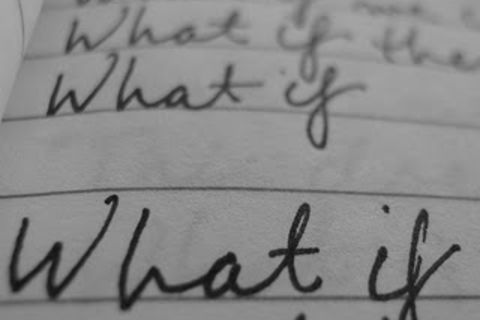 What if the
What if
What if